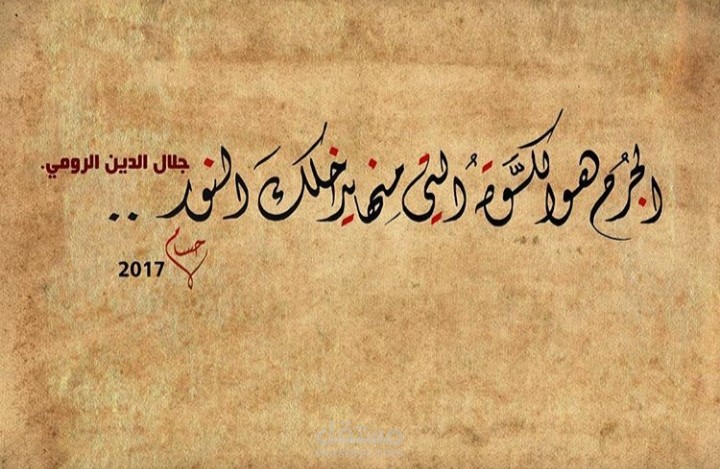 الجُرُح هو الكسَّوَةُ التي مِنها يدخلكَ النور ..
جلال الدين الرومي.
حسام
2017
مستقل